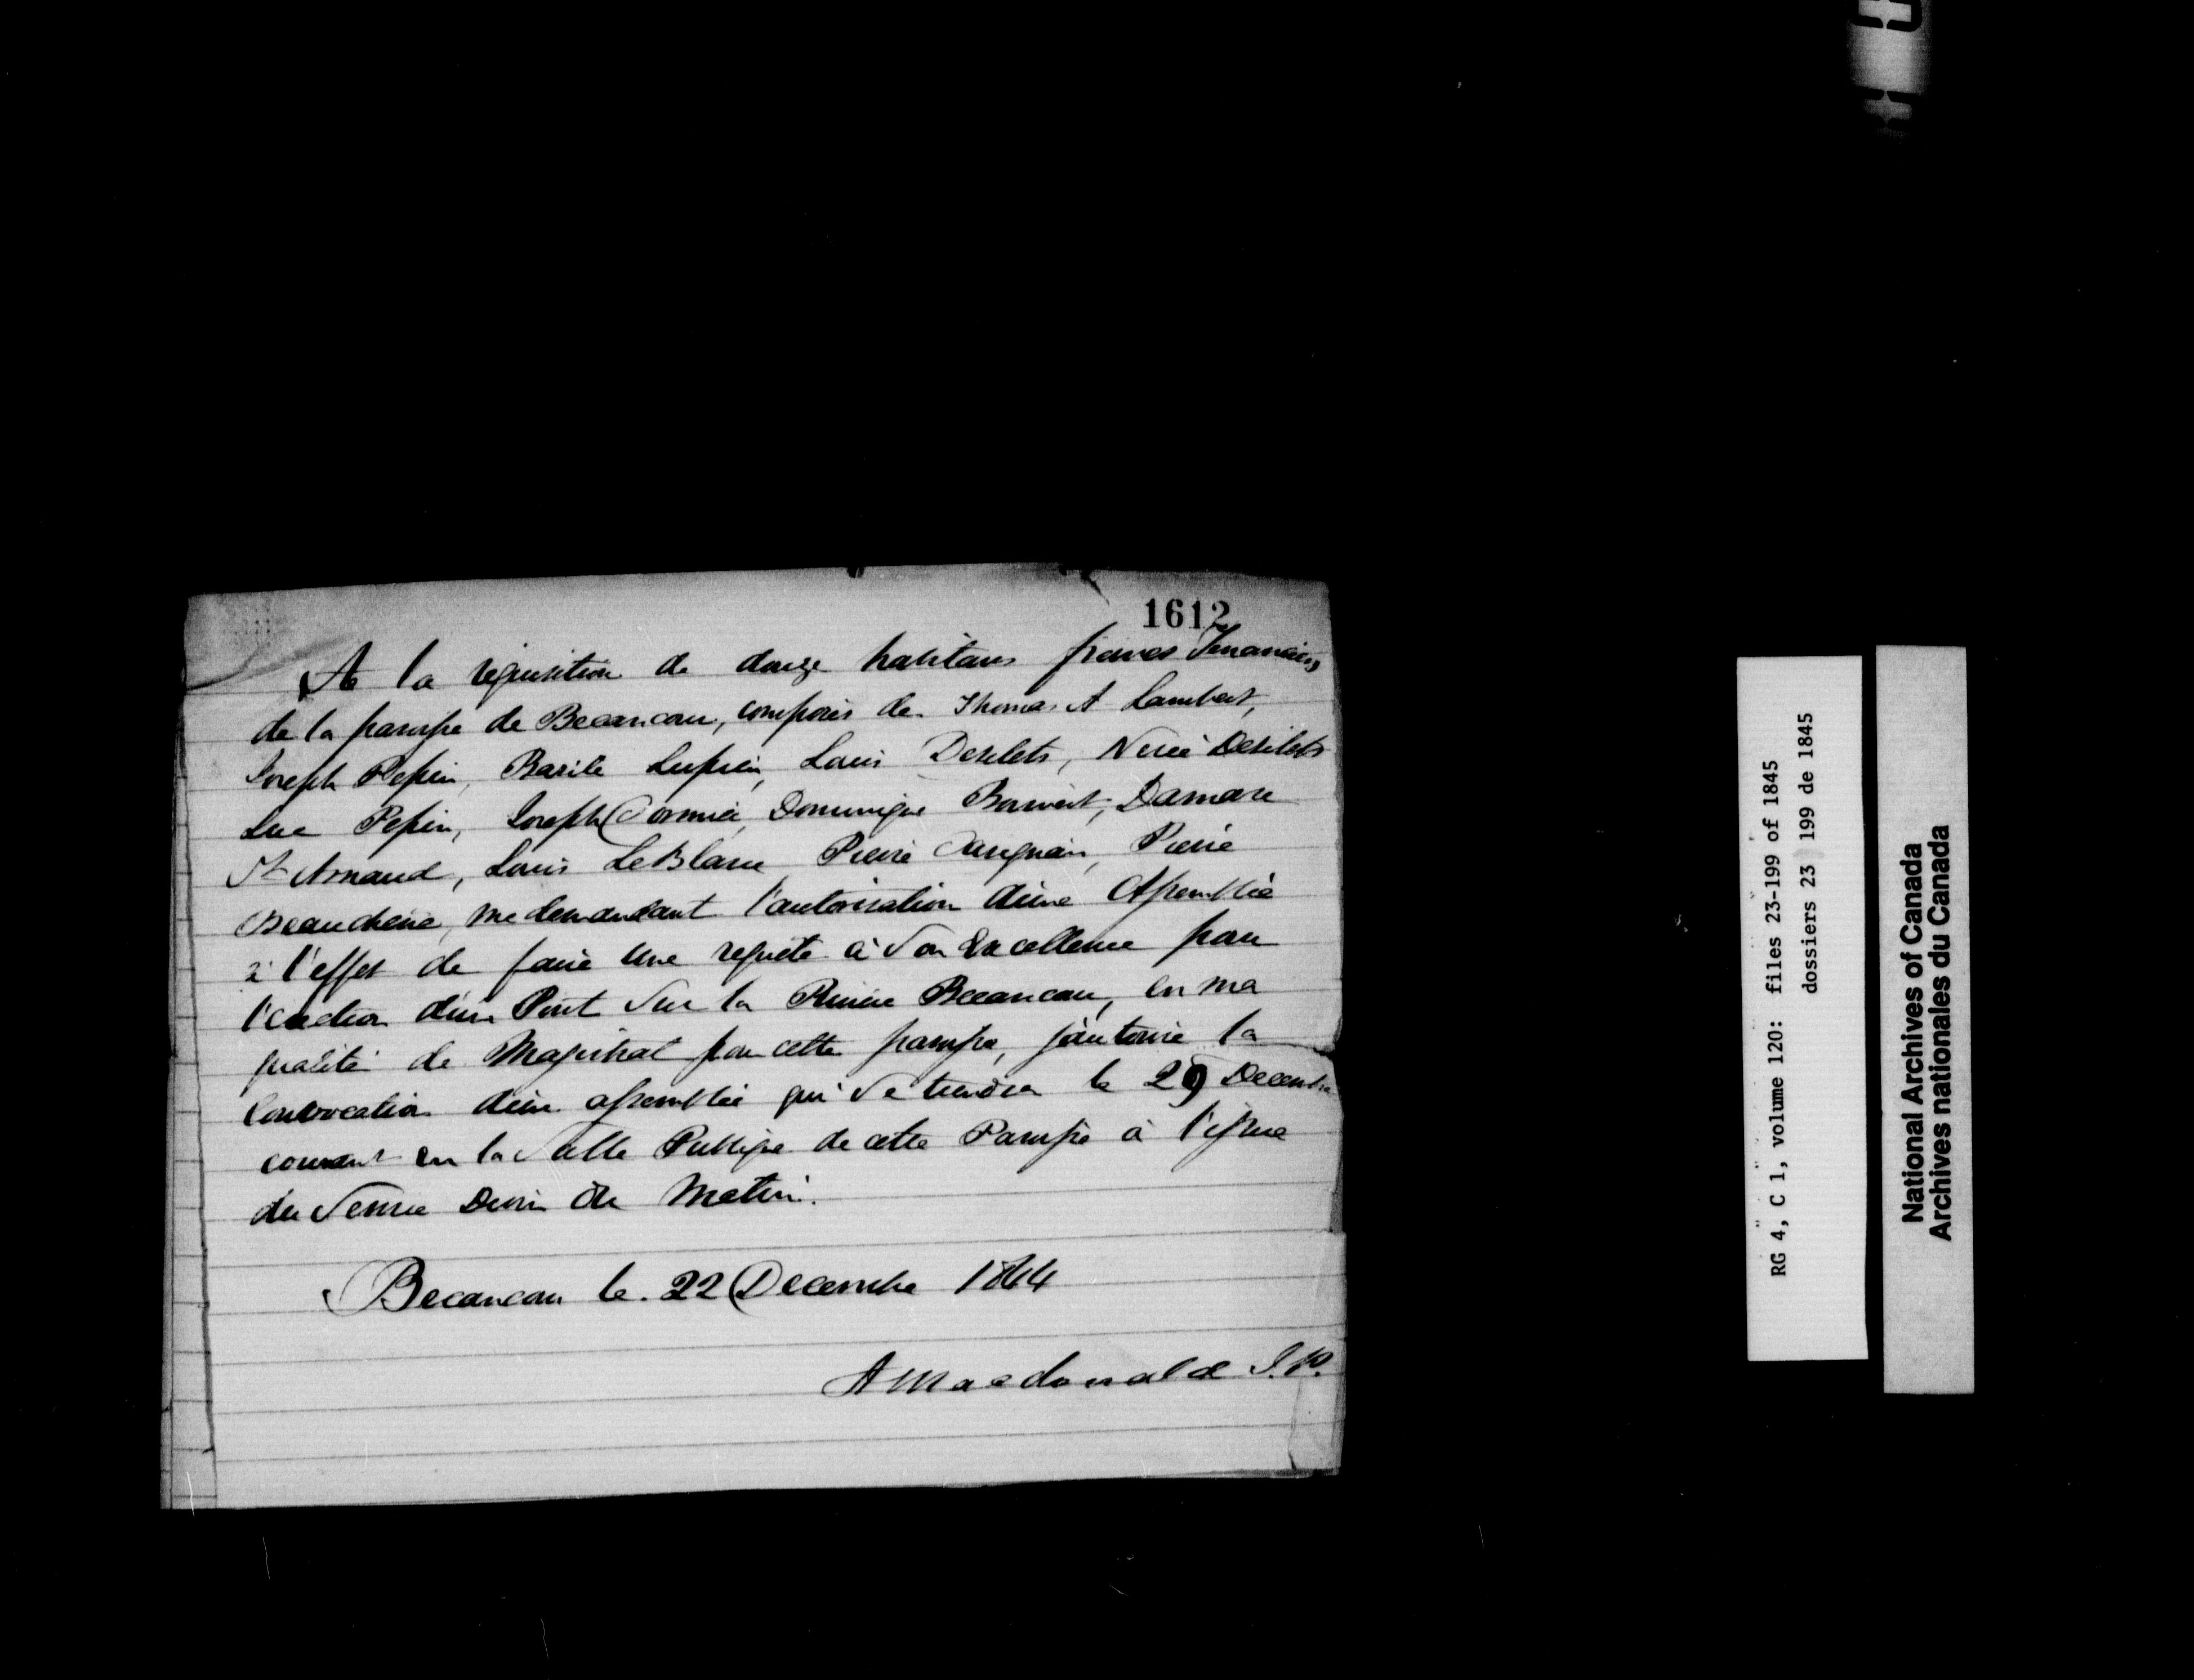 1612
A la requisition de douze habitans francs Tenanciers
de la paroisse de Becancour, composés de Thomas A Lambert,
Joseph Pepin, Basile Lupien, Louis Desilets, Nerée Desilets
Luc Pepin, Joseph Cormié, Dominique Damase
St Arnaud, Louis LeBlanc Pierre Carignan, Pierre
Beauchene, me demandant l'autorisation d'une Assemblée
à l'effet de faire une requête à Son Excellence pour
l'erection d'un Pont sur la Rivière Becancour, en ma
qualité de Magistrat pour cette paroisse, j'autorise la
Convocation d'une assemblée qui se tiendra le 29 Decembre
courant en la Salle Publique de cette Paroisse à l'issue
du Service Divin du Matin.
Becancour le 22 Decembre 1844
A Macdonald J.P.
RG 4, C 1, volume 120: files 23-199 of 1845
dossiers 23 199 de 1845
National Archives of Canada
Archives nationales du Canada